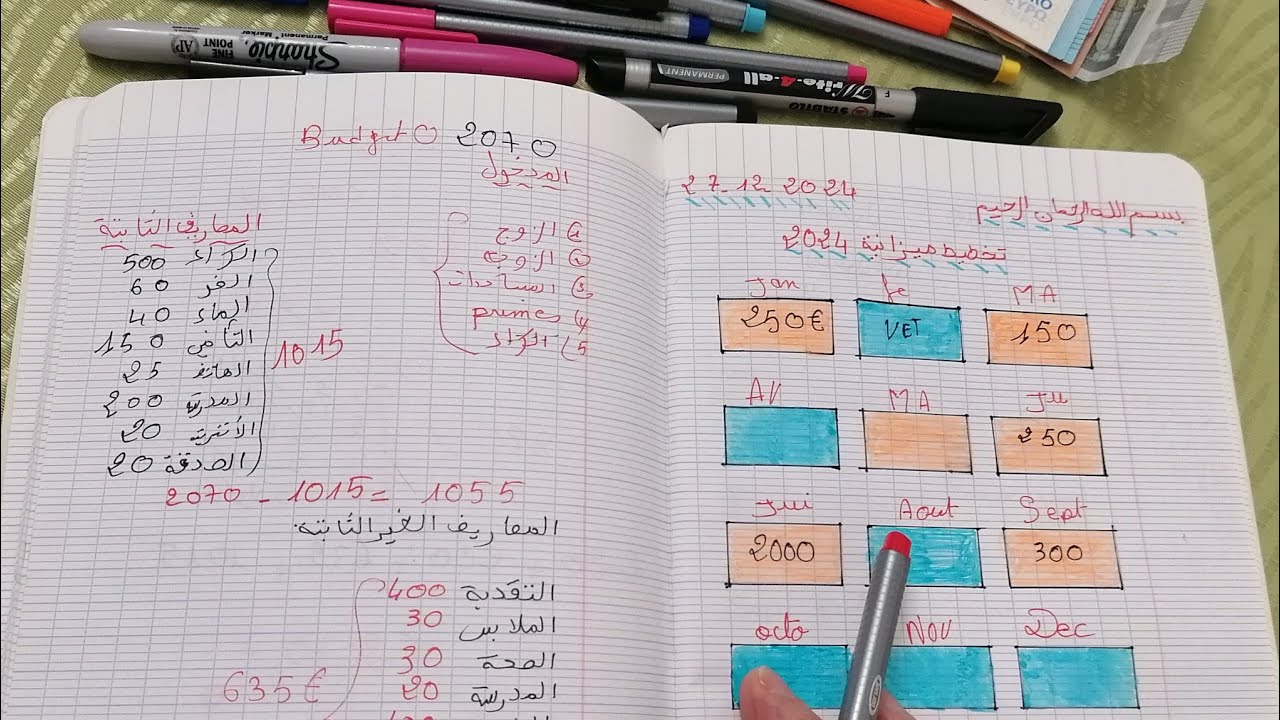 Sharpie
FINE POINT
Permanent Marker
AP
Write-4-all
PERMANENT
STABILO
F
Budget 2070
المدخول
1 الزوج
2 الزوجة
3 المساعدات
4 primes
5) الكراء
المصاريف الثابتة
الكراء 500
60
الماء 40
التأمين 150
الهاتف 25
المدرسة 200
الأنترنت 20
الصدقة 20
1015
2070 - 1015 = 1055
المصاريف الغير الثابتة:
التغدية 400
الملابس 30
الصحة 30
المدرسة 20
635€
27-12-2024
بسم الله الرحمان الرحيم
تخطيط ميزانية 2024
Jan Fe MA
250€ VET 150
AV MA Ju
250
Jui Aout Sept
2000 300
octo Nov Dec